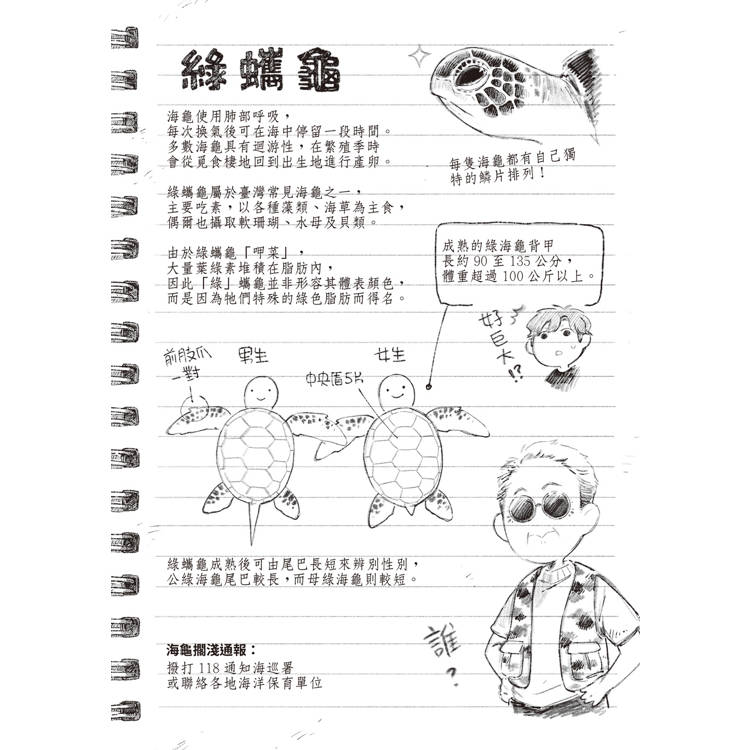 綠蠵龜
海龜使用肺部呼吸，
每次換氣後可在海中停留一段時間。
多數海龜具有迴游性，在繁殖季時
會從覓食棲地回到出生地進行產卵。
每隻海龜都有自己獨
特的鱗片排列！
綠蠵龜屬於臺灣常見海龜之一，
主要吃素，以各種藻類、海草為主食，
偶爾也攝取軟珊瑚、水母及貝類。
由於綠蠵龜「呷菜」，
大量葉綠素堆積在脂肪內，
因此「綠」蠵龜並非形容其體表顏色，
而是因為牠們特殊的綠色脂肪而得名。
成熟的綠海龜背甲
長約 90 至 135 公分，
體重超過 100 公斤以上。
好巨大!?
前肢爪
一對
男生
女生
中央盾5片
綠蠵龜成熟後可由尾巴長短來辨別性別，
公綠海龜尾巴較長，而母綠海龜則較短。
誰？
海龜擱淺通報：
撥打 118 通知海巡署
或聯絡各地海洋保育單位